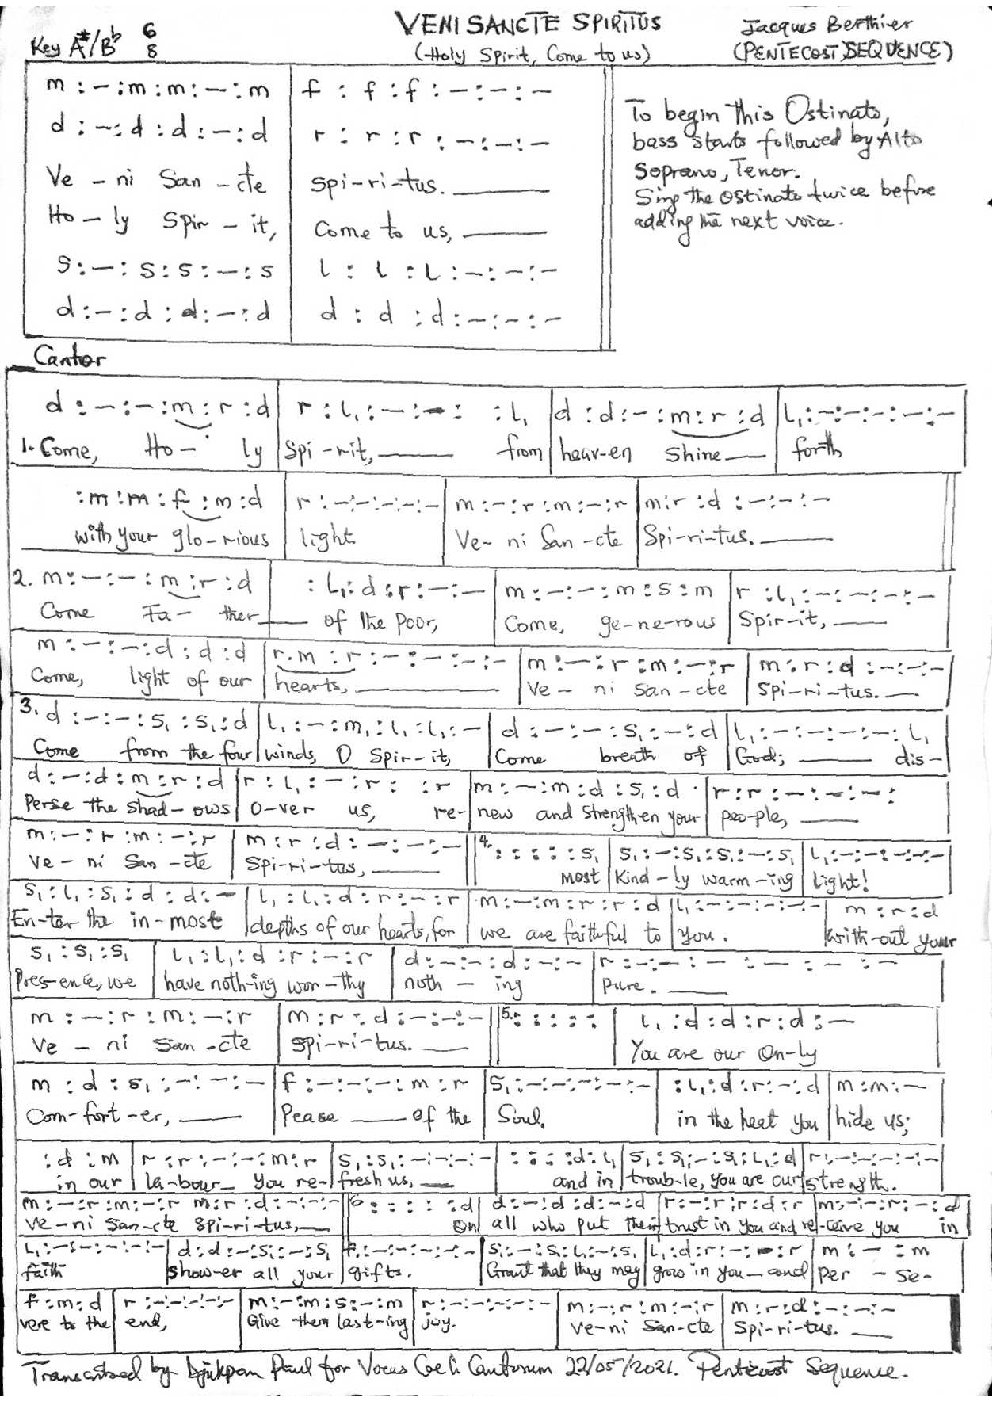 VENI SANCTE SPIRITUS
Jacques Berthier
Key A#/Bb 6/8
(Holy Spirit, Come to us)
(PENTECOST SEQUENCE)
m : – : m : m : – : m | f : f : f : – : – : –
d : – : d : d : – : d | r : r : r : – : – : –
Ve – ni San – cte | Spi-ri-tus. ____
Ho – ly Spir – it, | Come to us, ____
s : – : s : s : – : s | l : l : l : – : – : –
d : – : d : d : – : d | d : d : d : – : – : –
To begin this Ostinato,
bass starts followed by Alto
Soprano, Tenor.
Sing the Ostinato twice before
adding the next voice.
Cantor
d : – : – : m : r : d | r : l₁ : – : – : : l₁ | d : d : – : m : r : d | l₁ : – : – : – : – : –
1. Come, Ho – ly | Spi-rit, ____ from | heav-en shine ____ | forth
: m : m : f : m : d | r : – : – : – : – : – | m : – : r : m : – : r | m : r : d : – : – : –
with your glo-rious | light | Ve – ni San – cte | Spi-ri-tus. ____
2. m : – : – : m : r : d | : l₁ : d : r : – : – | m : – : – : m : s : m | r : l₁ : – : – : – : –
Come Fa – ther ____ | of the Poor, | Come, ge-ne-rous | Spir-it, ____
m : – : – : d : d : d | r.m : r : – : – : – : – | m : – : r : m : – : r | m : r : d : – : – : –
Come, light of our | hearts, ____ | Ve – ni San – cte | Spi-ri-tus. ____
3. d : – : – : s₁ : s₁ : d | l₁ : – : m₁ : l₁ : l₁ : – | d : – : – : s₁ : – : d | l₁ : – : – : – : – : l₁
Come from the four | winds, O Spir-it, | Come breath of | God; ____ dis-
d : – : d : m : r : d | r : l₁ : – : r : : r | m : – : m : d : s₁ : d | r : r : – : – : – :
Perse the shad-ows | O-ver us, re- | new and strengthen your | peo-ple, ____
m : – : r : m : – : r | m : r : d : – : – : – | 4. : : : : : s₁ | s₁ : – : s₁ : s₁ : – : s₁ | l₁ : – : – : – : – : –
Ve – ni San – cte | Spi-ri-tus, ____ | most | Kind-ly warm-ing | light!
s₁ : l₁ : s₁ : d : d : – | l₁ : l₁ : d : r : – : r | m : – : m : r : r : d | l₁ : – : – : – : – : – | m : r : d
En-ter the in-most | depths of our hearts, for | we are faithful to | you. | with-out your
s₁ : s₁ : s₁ | l₁ : l₁ : d : r : – : r | d : – : – : d : – : – | r : – : – : – : – : –
Pres-ence, we | have noth-ing wor-thy | noth – ing | pure. ____
m : – : r : m : – : r | m : r : d : – : – : – | 5. : : : : : | l₁ : d : d : r : d : –
Ve – ni San – cte | Spi-ri-tus. ____ | You are our On-ly
m : d : s₁ : – : – : – | f : – : – : – : m : r | s₁ : – : – : – : – : – | : l₁ : d : r : – : d | m : m : –
Com-fort-er, ____ | Peace ____ of the | Soul. | in the heat you | hide us;
: d : m | r : r : – : – : m : r | s₁ : s₁ : – : – : – : – | : : : : d : l₁ | s₁ : s₁ : – : s₁ : l₁ : d | r : – : – : – : – : –
in our | la-bour_ you re- | fresh us, ____ | and in | trouble, you are our | strength.
m : – : r : m : – : r m : r : d : – : – : – | 6 : : : : : d | d : – : d : d : – : d | r : – : r : r : r : d | m : – : – : r : – : d
Ve-ni San-cte Spi-ri-tus, ____ | On | all who put their | trust in you and re- | ceive you in
l₁ : – : – : – : – : – | d : d : – : s₁ : – : s₁ | f₁ : – : – : – : – : – | s₁ : – : s₁ : l₁ : – : s₁ | l₁ : d : r : – : – : r | m : – : m
faith | show-er all your | gifts. | Grant that they may | grow in you – and | per – se-
f : m : d | r : – : – : – : – : – | m : – : m : s : – : m | r : – : – : – : – : – | m : – : r : m : – : r | m : r : d : – : – : –
vere to the | end, | Give them last-ing | joy. | Ve-ni San-cte | Spi-ri-tus. ____
Transcribed by Paul for Vocus Coeli Cantorum 22/05/2021. Pentecost Sequence.